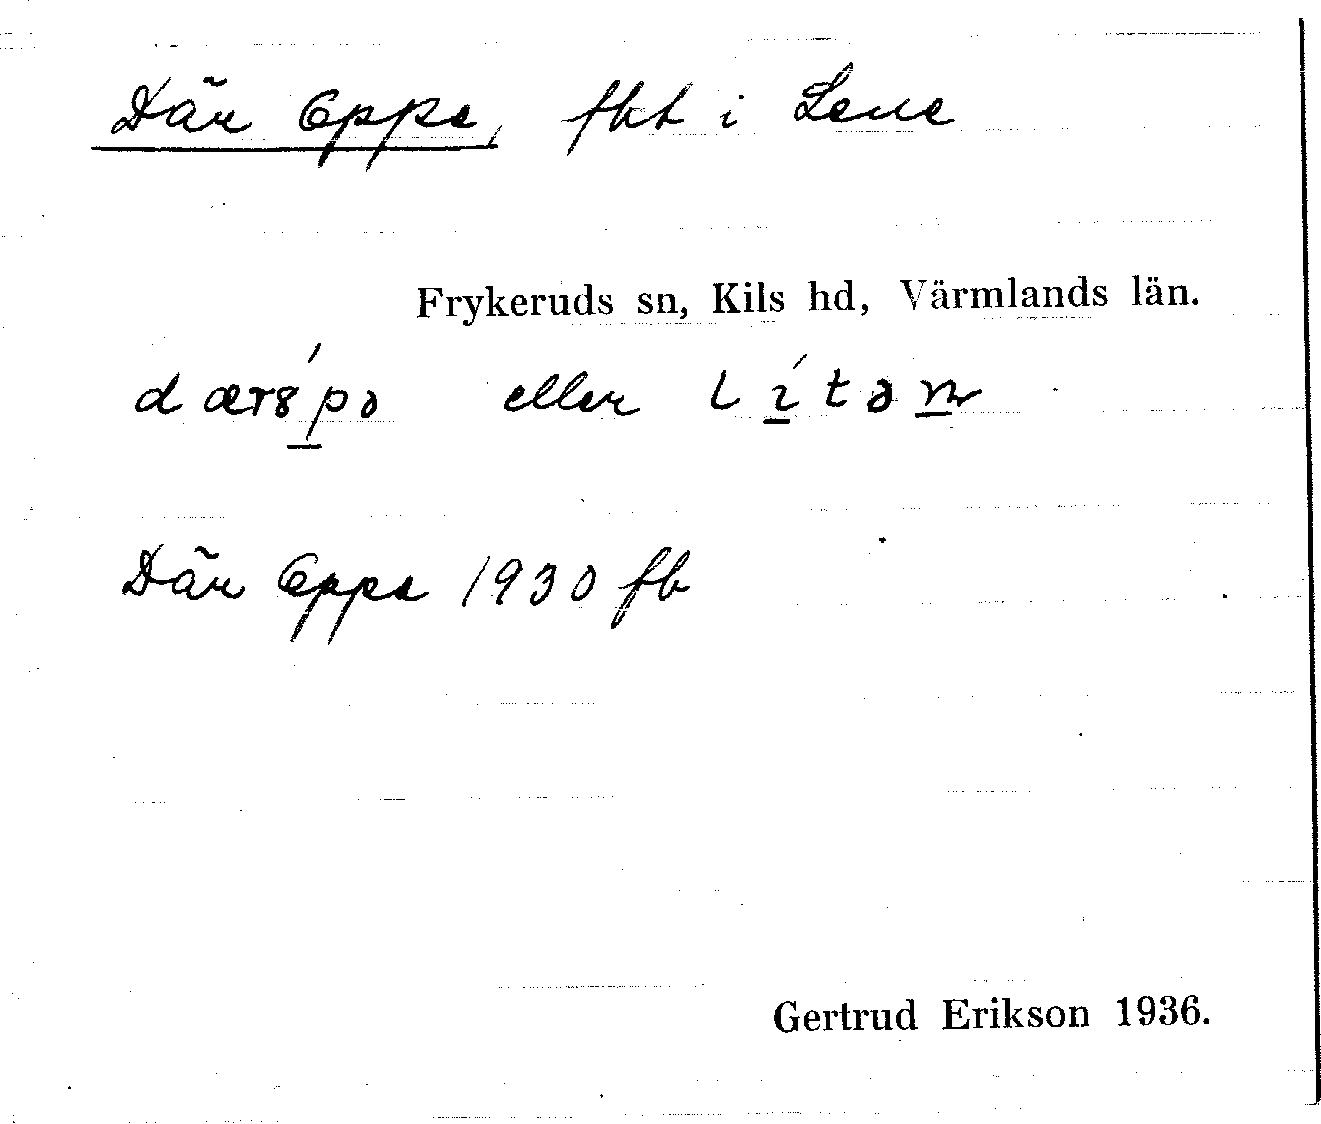 Där Oppe, fkt i Lene
Frykeruds sn, Kils hd, Värmlands län.
eller
Där Oppe 1930 fb
Gertrud Erikson 1936.